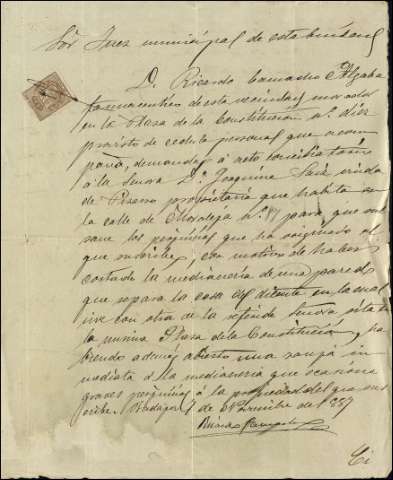 Sor Juez municipal de esta ciudad
D. Ricardo Camacho Algaba
farmacéutico de esta vecindad, morador
en la Plaza de la Constitución nº diez
provisto de cedula personal que acom
paña, demanda á acto conciliatorio
á la Señora Dª Joaquina viuda
de propietaria que habita en
la calle de nº 17 para que sub
sane los perjuicios que ha originado al
que suscribe, con motivo de haber
cortado la medianería de una pared
que separa la casa del dicente en la cual
vive con otra de la referida Señora sita en
la misma Plaza de la Constitución y ha
biendo además abierto una zanja in
mediata á la medianería que ocasiona
graves perjuicios á la propiedad del que sus
cribe. de de 1887
Ricardo Camacho